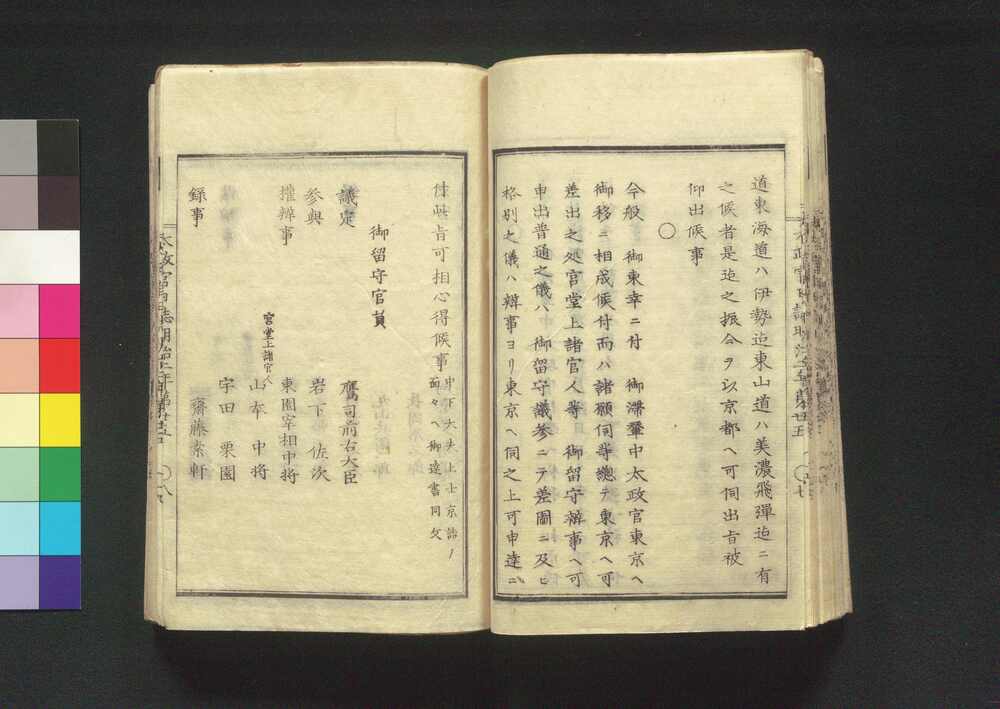 道東海道ハ伊勢迄東山道ハ美濃飛彈迄ニ有
之候者是迄之振合ヲ以京都ヘ可伺出旨被
仰出候事
○
今般　御東幸ニ付　御滞輦中太政官東京ヘ
御移ニ相成候付而ハ諸願伺等總テ東京ヘ可
差出之処官堂上諸官人等　御留守辨事ヘ可
申出普通之儀ハ御留守議参ニテ差圖ニ及ヒ
格別之儀ハ辨事ヨリ東京ヘ伺之上可申達ニ
付此旨可相心得候事
中下大夫上士京詰ノ
面々ヘ御達書同文
御留守官員
議定　鷹司前右大臣
参與　岩下佐次
權辨事　東園宰相中将
宮堂上諸官人
山本中将
宇田栗園
錄事　齋藤紫軒